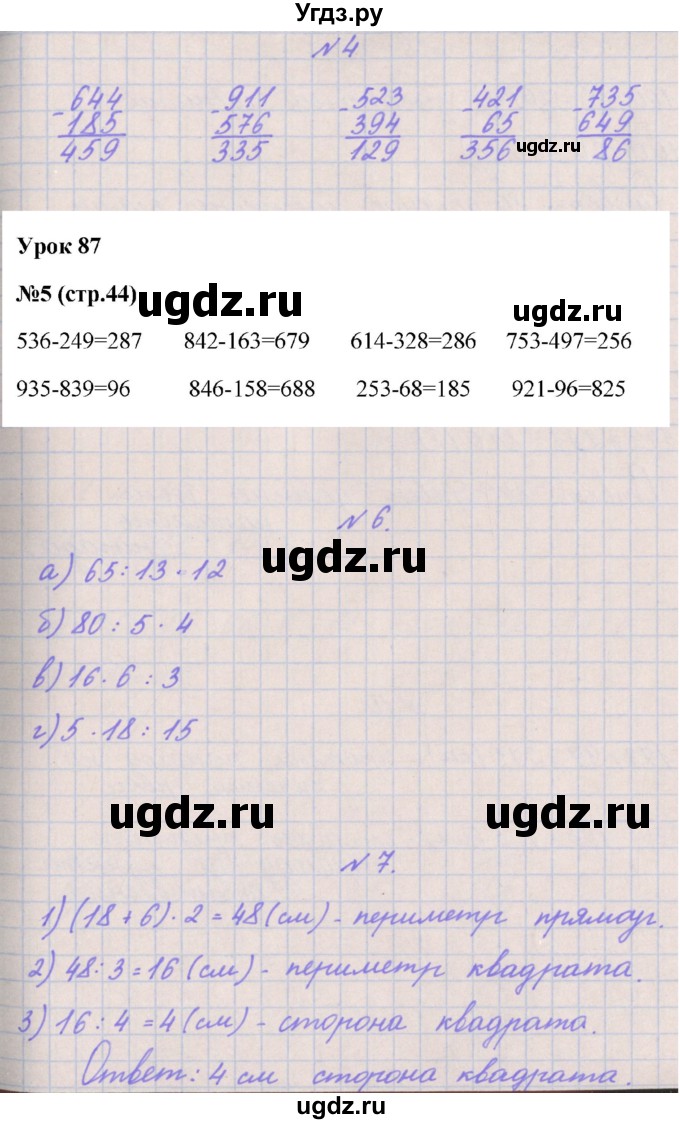 Угдз.ру
№4
- 644 - 911 - 523 - 421 - 735
185 576 394 65 649
459 335 129 356 86
ugdz.ru
Урок 87
№5 (стр.44)
ugdz.ru
ugdz.ru
536-249=287 842-163=679 614-328=286 753-497=256
935-839=96 846-158=688 253-68=185 921-96=825
№6.
ugdz.ru
а) 65:13·12
б) 80:5·4
в) 16·6:3
г) 5·18:15
ugdz.ru ugdz.ru
№7.
1) (18+6)·2=48(см) - периметр прямоуг.
2) 48:3=16(см) - периметр квадрата.
3) 16:4=4(см) - сторона квадрата.
Ответ: 4 см сторона квадрата.
ugdz.ru